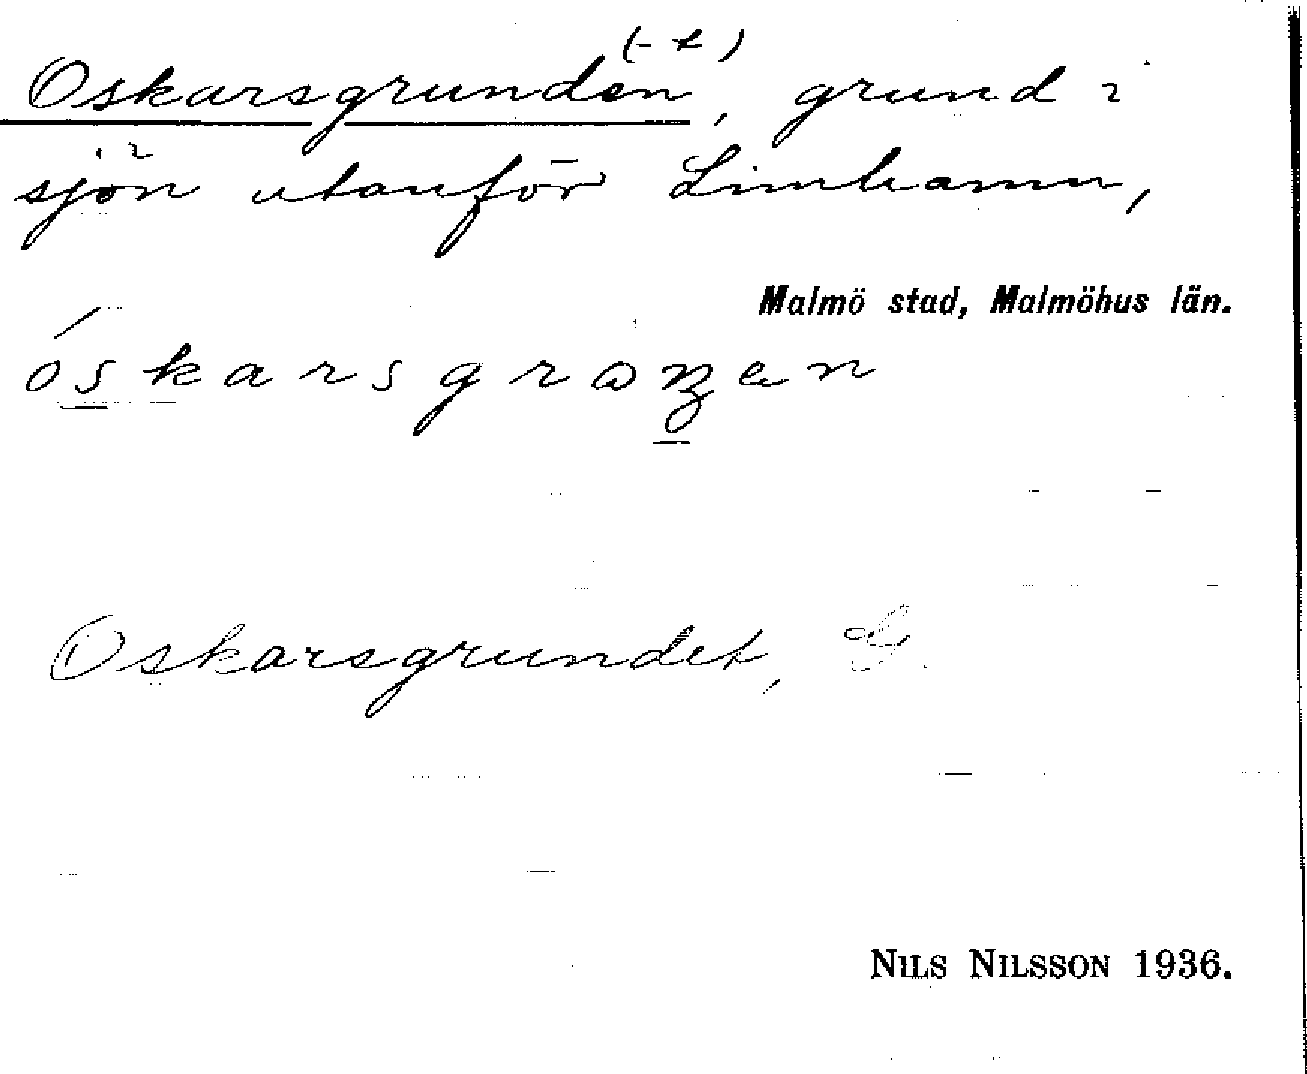 (-t)
Oskarsgrunden, grund i
sjön utanför Limhamn,
Malmö stad, Malmöhus län.
Oskarsgrundet, G.
NILS NILSSON 1936.